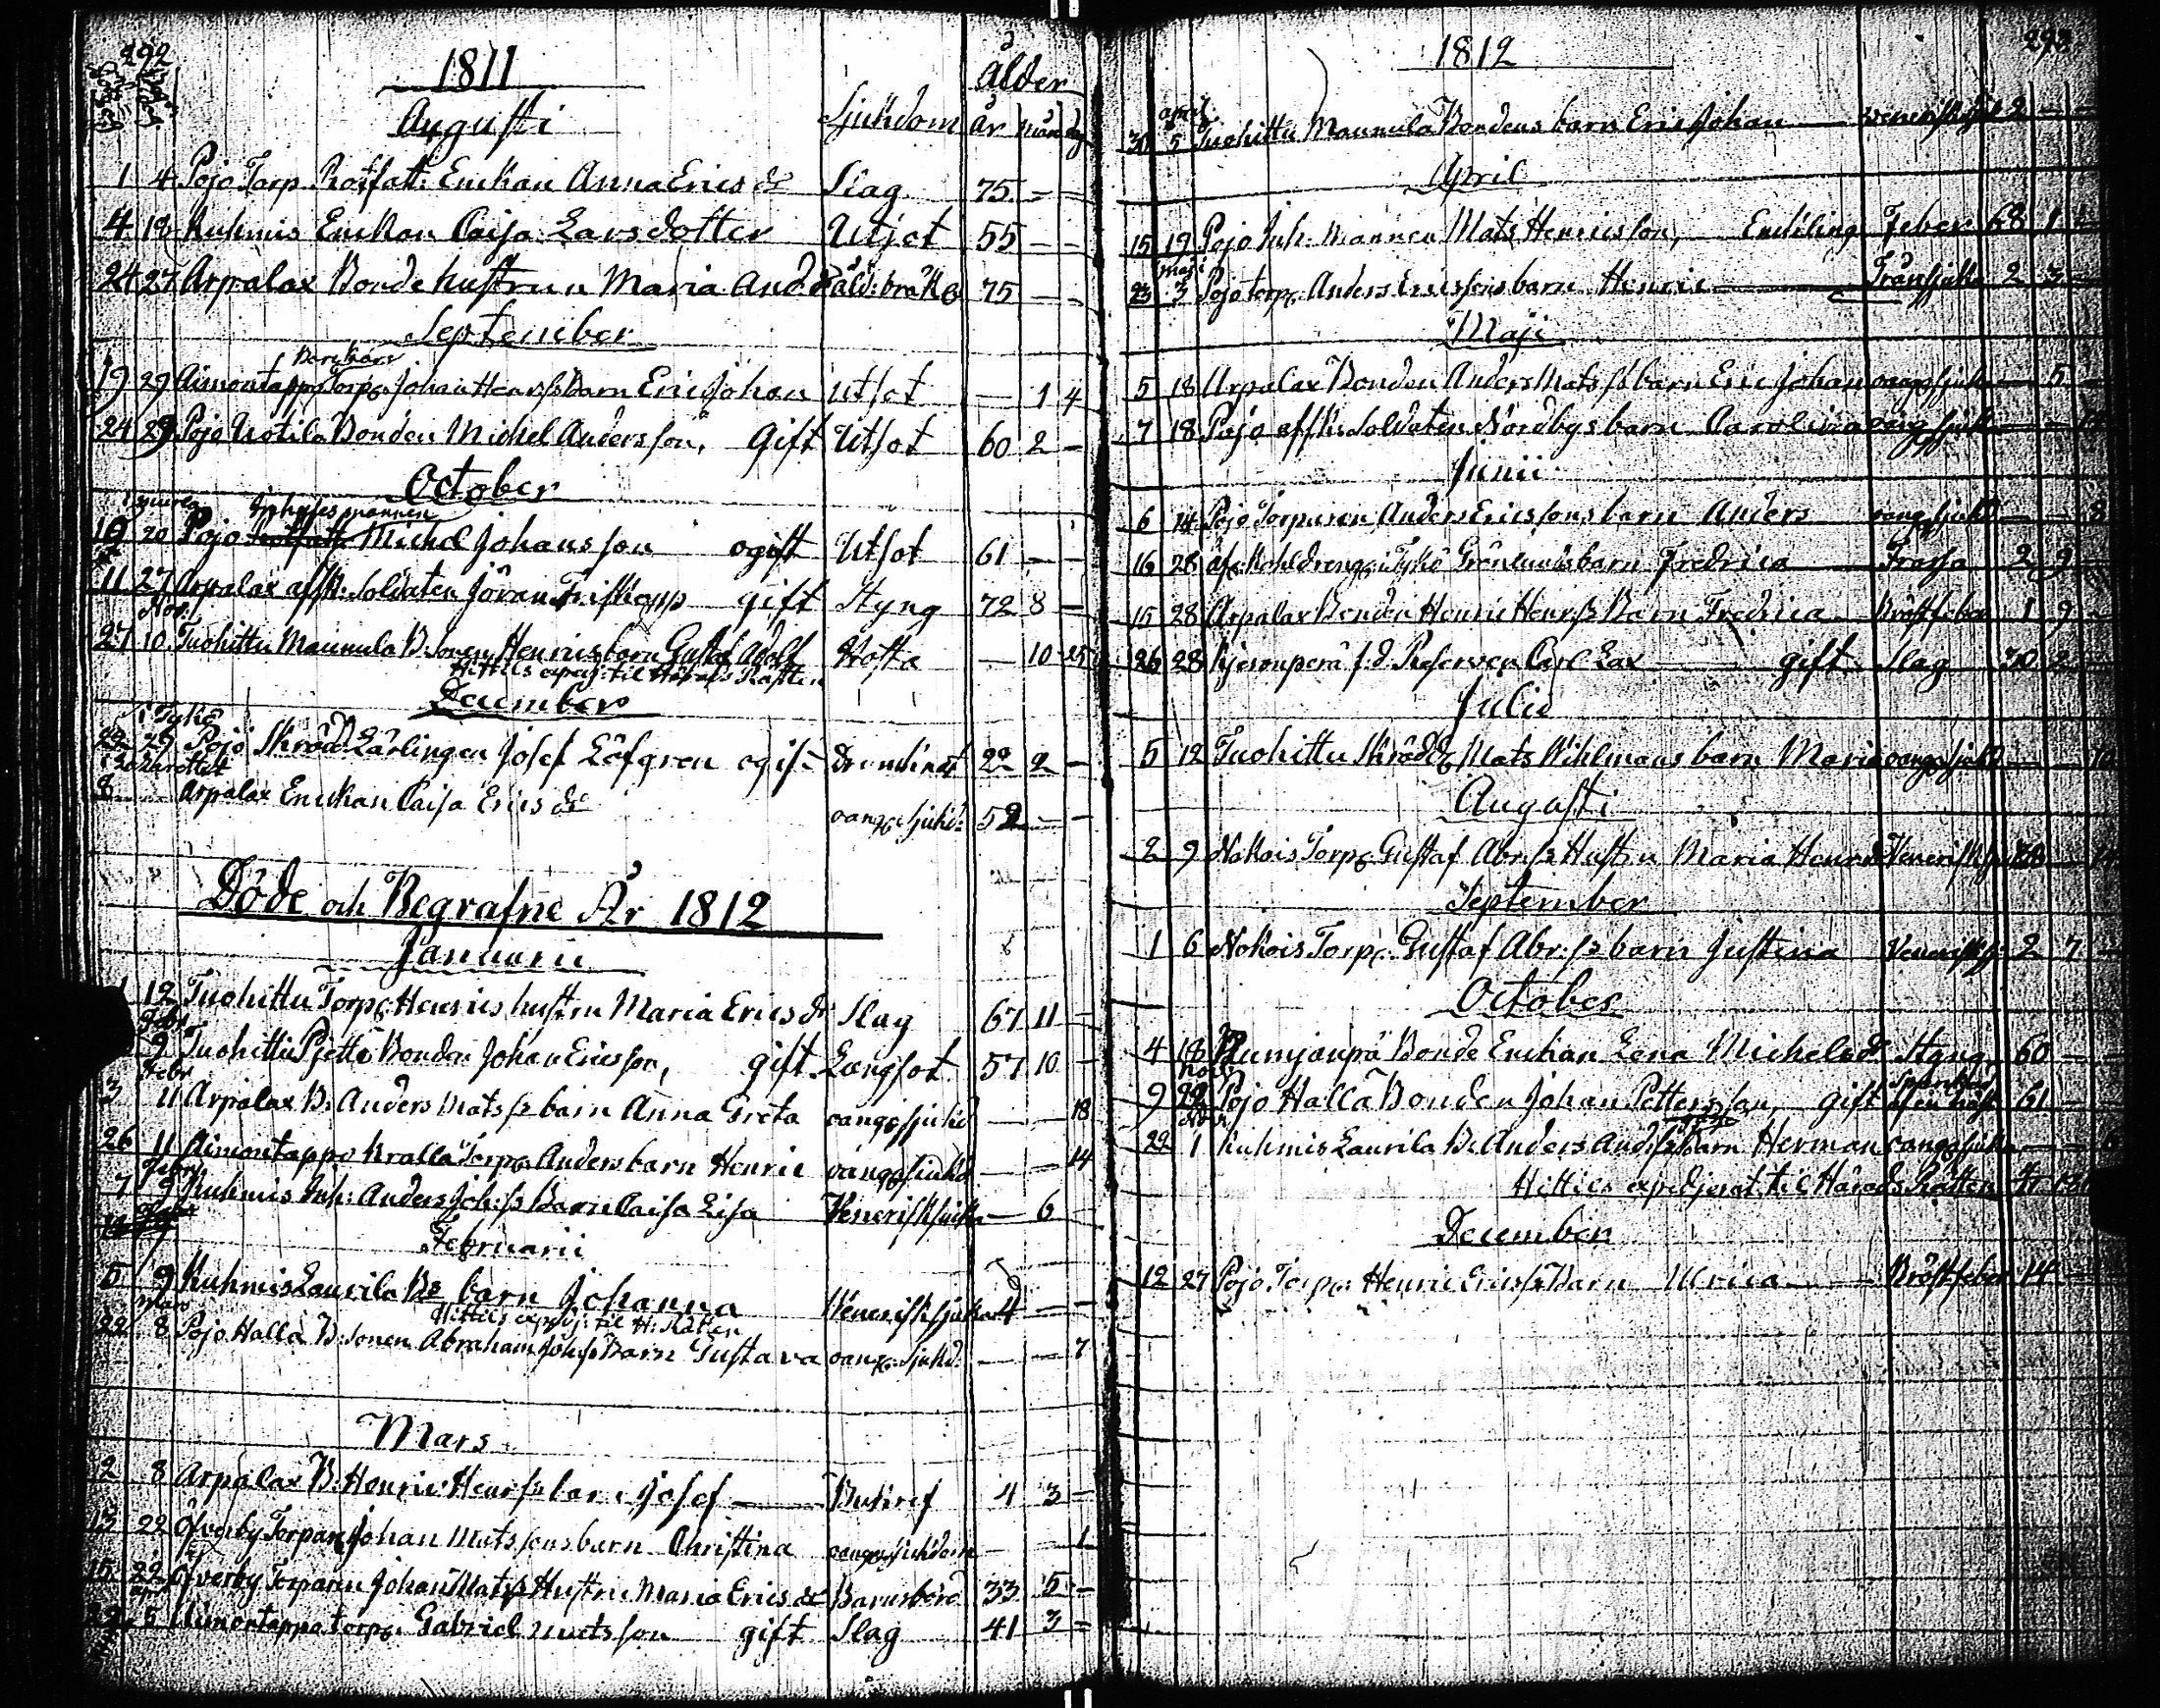 292
1811
Ålder
Augusti Sjukdom år mån dag
1 4 Pojo Torp Rotfatt: Enckan Anna Erics dr Slag 75 – –
4 18 Kuhmis Enckan Caisa Larsdotter Utsot 55 – –
24 27 Arpalax Bonde hustrun Maria And:dr åld: bräckl 75 – –
September
19 29 Aimontappo Torp: Johan Henr:s Barn Eric Johan Utsot – 1 4
24 29 Pojo Uotila Bonden Michel Andersson, Gift Utsot 60 2 –
October
Inhyses mannen
10 20 Pojo Michel Johansson ogift Utsot 61 – –
11 27 Arpalax afsk: Soldaten Jöran gift Styng 72 8 –
Nov:
27 10 Tuohittu Maunula B. Sonen Henrics barn Gustaf Adolf Rossa – 10 25
Hittils exped: til Härads Rätten
December
i Tykö
22 29 Pojo Skrädd: Lärlingen Josef Löfgren ogift drunknat 22 2 –
8 Arpalax Enckan Caisa Erics dr oang: sjukd: 52 – –
Döde och Begrafne År 1812
Januarii
1 12 Tuohittu Torp: Henrics hustru Maria Erics dr Slag 67 11 –
Febr.
9 Tuohittu Pjettä Bonden Johan Ericsson, gift Långsot 57 10 –
Febr.
3 11 Arpalax B: Anders Mats:s barn Anna Greta oang: sjukd – – 18
26 11 Aimontappo Kralla Torp: Anders barn Henric oang: sjukd – – 14
Febr.
7 9 Kuhmis Inh: Anders Joh:s Barn Caisa Lisa Venerisk sjuka – 6
Februarii
5 9 Kuhmis Laurila Bs barn Johanna Venerisk sjuka 4 – –
Mars Hittils exped: til H: Rätten
22 8 Pojo Halla B: Sonen Abraham Joh:s Barn Gustava oang: sjukd: – – 7
Mars
2 8 Arpalax B: Henric Henr:s barn Josef Bukref 4 3 –
13 22 Öfverby Torparn Johan Matssons barn Christina oang: sjukdom – – 1
15 22 Öfverby Torparn Johan Mats:s Hustru Maria Erics dr Barnsbörd 33 5 –
apr
22 5 Aimontappo torp: Gabriel Matsson gift Slag 41 3 –
1812
293
april
30 5 Tuohittu Maunula Bondens barn Eric Johan venerisk sjuk 2 – –
April
15 19 Pojo Inh: Mannen Mats Henricsson, Enckling Feber 68 1
maji
23 3 Pojo torp: Anders Ericssons barn Henric Trånsjuka 2 3 –
Maji
5 18 Arpalax Bonden Anders Mats:s barn Eric Johan oang: sjukd – 5 –
7 18 Pojo afsk: Soldaten Nordbys barn Carolina oang: sjukd – –
Junii
6 14 Pojo Torparen Anders Ericssons barn Anders oang: sjukd – – 8
16 28 Tykö Grönlunds barn Fredrica Frossa 2 9 –
15 28 Arpalax Bonden Henric Henr:s Barn Fredrica Bröstfeber 1 9 –
26 28 f.d. Reserven Carl Lax gift Slag 70 2 –
Julii
5 12 Tuohittu Skrädd: Mats Wihlmans barn Maria oang: sjukd – –
Augusti
2 9 Nokois Torp: Gustaf Abr:s Hustru Maria Henr:dr Venerisk sj
September
1 6 Nokois Torp: Gustaf Abr:s barn Justina Venerisk sj 2 7 –
October
4 18 Rumjänpä Bonde Enckan Lena Michels dr Styng 60 – –
Nov:
9 22 Pojo Halla Bonden Johan Pettersson, gift 61 – –
22 1 Kuhmis Laurila B: Anders And:s Barn Herman oang: sjukd – –
Hittils expedjerat til Härads Rätten
December
12 27 Pojo Torp: Henric Erics:s Barn Ulrica Bröstfeber 14 –